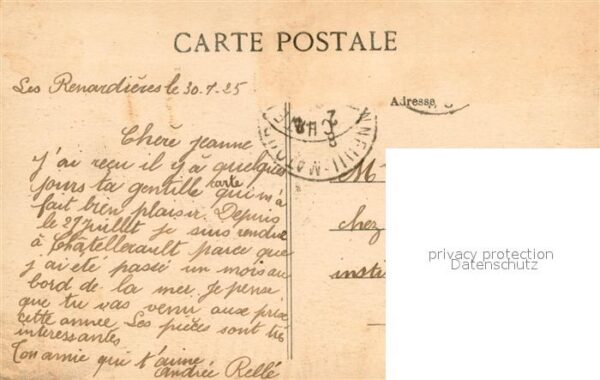 CARTE POSTALE
Les Renardières le 30-7-25
Adresse
Chère jeanne
j'ai reçu il y à quelque
jours ta gentille carte qui m'à
fait bien plaisir. Depuis
le 27 juillet je suis rendue
à Chatellerault parce que
j'ai été passé un mois au
bord de la mer. Je pense
que tu vas venir aux prix
cette année. Les pièces sont très
interessantes
Ton amie qui t'aime
Andrée Rellé
M
chez
instit
privacy protection
Datenschutz